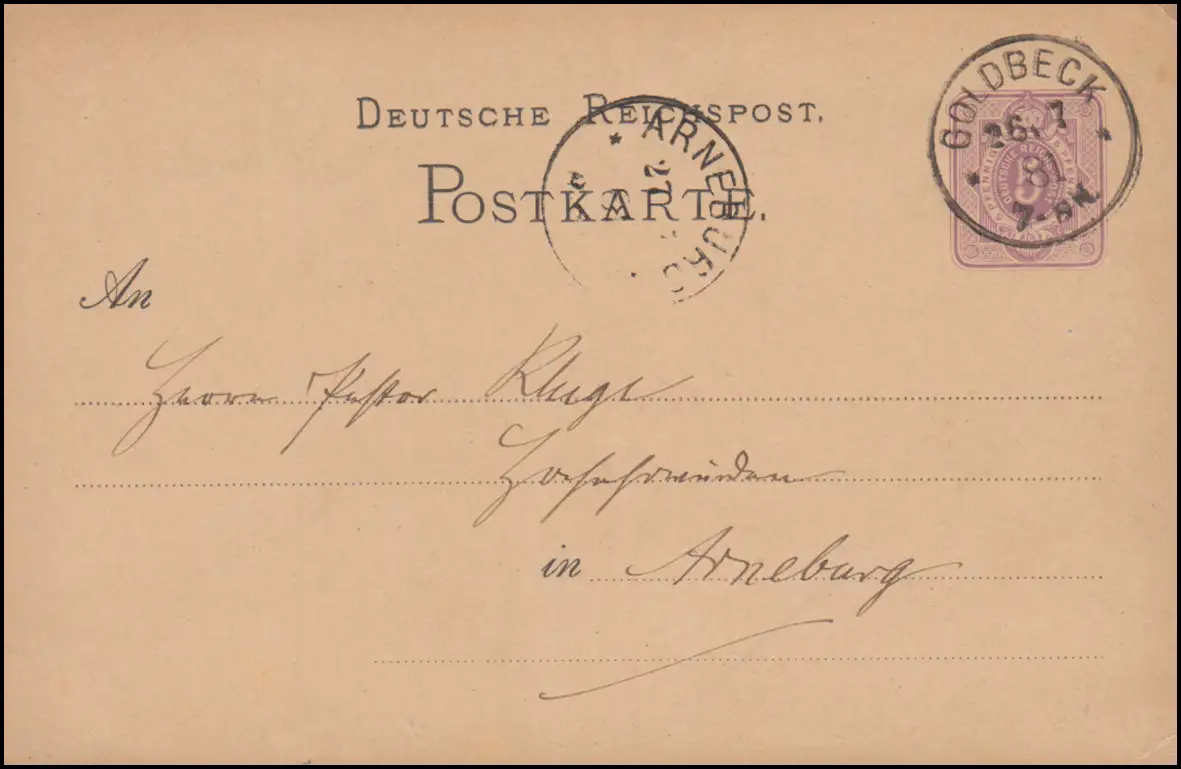 DEUTSCHE REICHSPOST.
POSTKARTE.
GOLDBECK
26. 7
81
7-8N.
ARNEBURG
27
An
Herrn Pastor Kluge
Hochehrwürden
in Arneburg